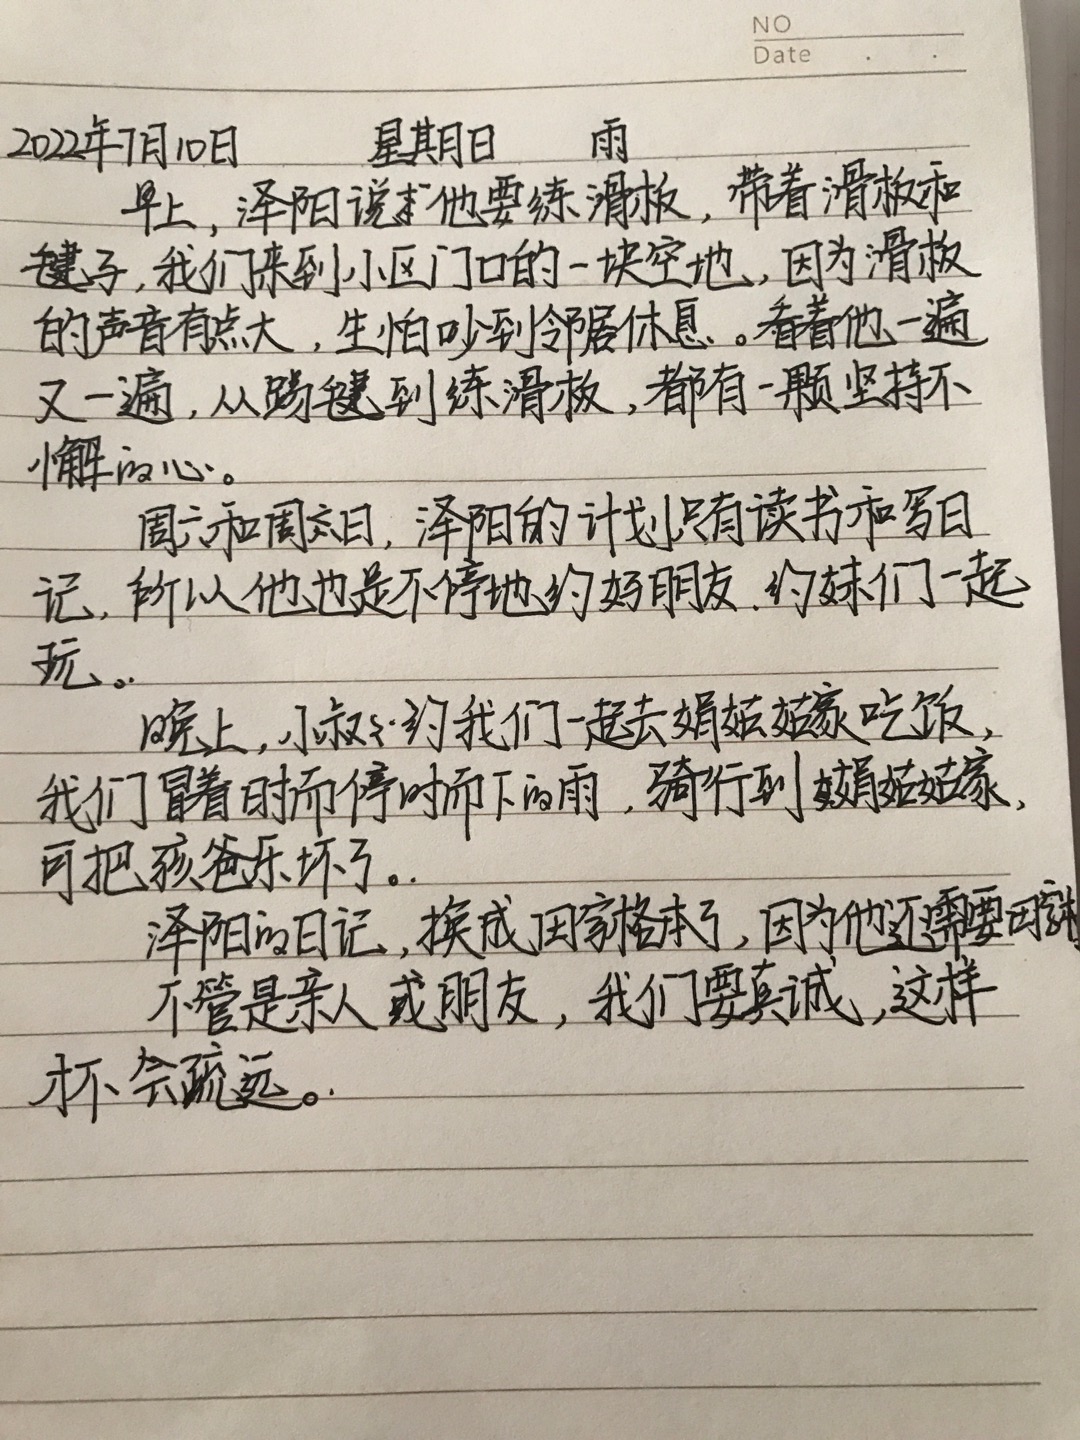 NO
Date . .
2022年7月10日 星期日 雨
早上，泽阳说他要练滑板，带着滑板和
毽子，我们来到小区门口的一块空地，因为滑板
的声音有点大，生怕吵到邻居休息。看着他一遍
又一遍，从踢毽到练滑板，都有一颗坚持不
懈的心。
周六和周日，泽阳的计划只有读书和写日
记，所以他也是不停地约好朋友、约妹们一起
玩。
晚上，小叔叔约我们一起去娟姑姑家吃饭，
我们冒着时而停时而下的雨，骑行到娟姑姑家，
可把孩爸乐坏了。
泽阳的日记，换成田字格本了，因为他还需要田字格
不管是亲人或朋友，我们要真诚，这样
才不会疏远。